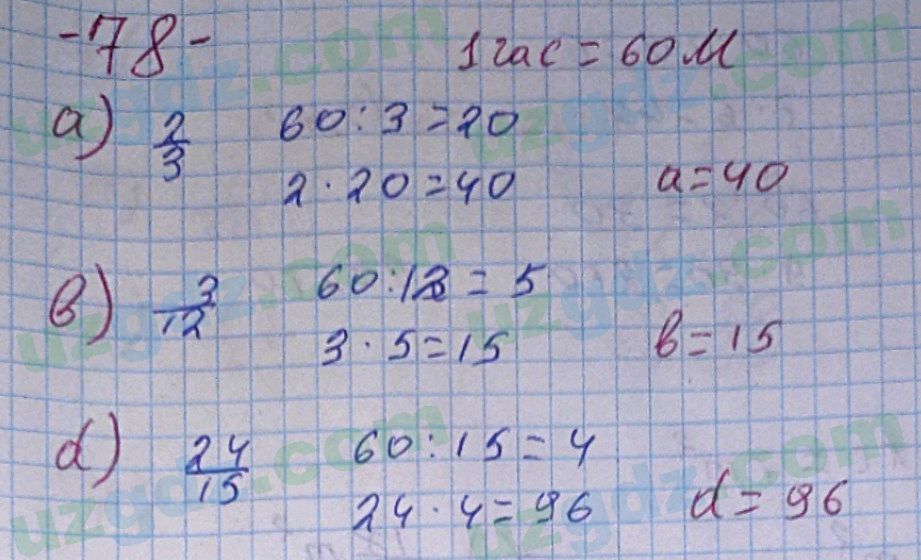 -78-
1 час = 60 м
а) 2/3 60 : 3 = 20
2 · 20 = 40 а = 40
в) 3/12 60 : 12 = 5
3 · 5 = 15 в = 15
d) 24/15 60 : 15 = 4
24 · 4 = 96 d = 96
uzgdz.com